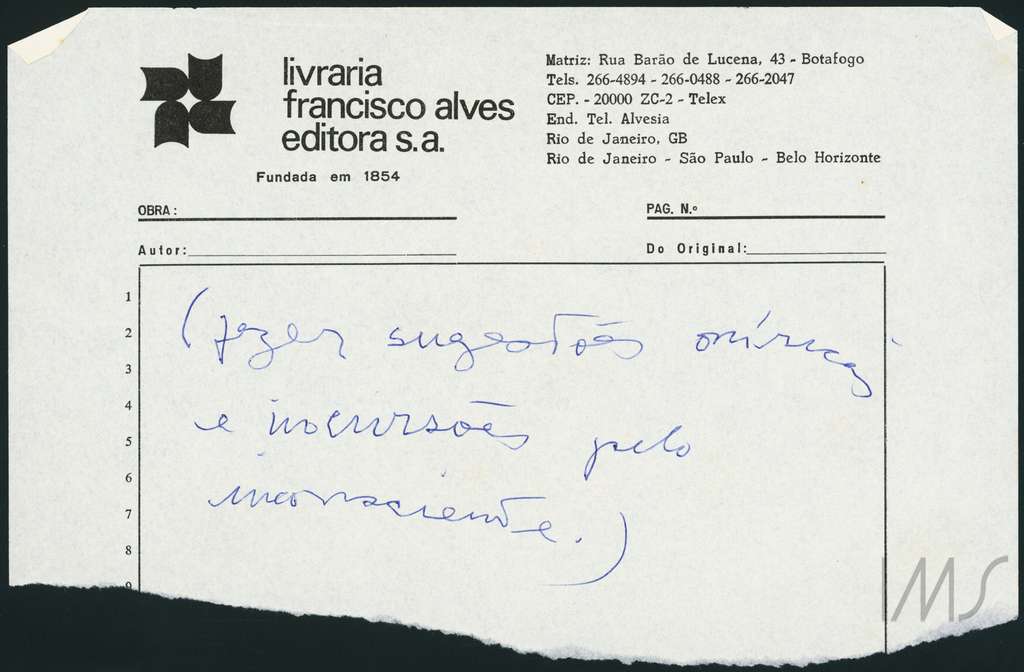 livraria
francisco alves
editora s.a.
Fundada em 1854
Matriz: Rua Barão de Lucena, 43 - Botafogo
Tels. 266-4894 - 266-0488 - 266-2047
CEP. - 20000 ZC-2 - Telex
End. Tel. Alvesia
Rio de Janeiro, GB
Rio de Janeiro - São Paulo - Belo Horizonte
OBRA:
PAG. N.º
Autor:
Do Original:
1
2
3
4
5
6
7
8
9
(fazer sugestões oníricas
e incursões pelo
inconsciente.)
IMS